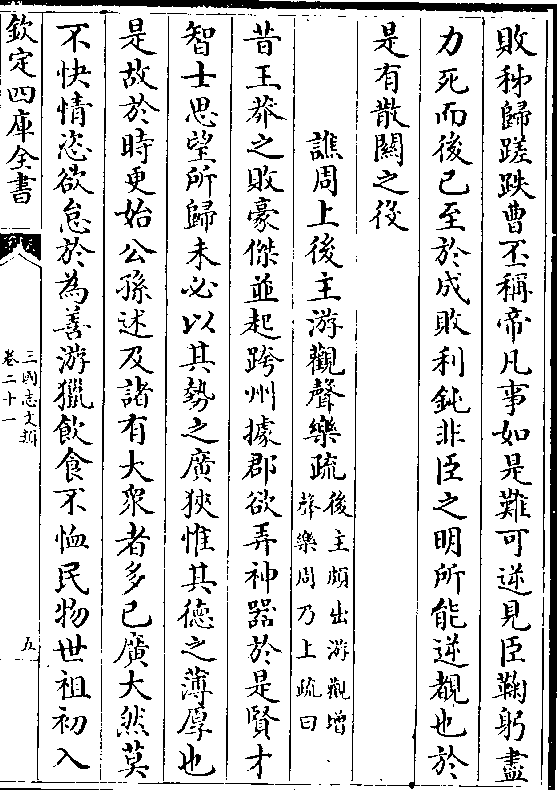 敗秭歸蹉跌曹丕稱帝凡事如是難可逆見臣鞠躬盡
力死而後已至於成敗利鈍非臣之明所能逆覩也於
是有散關之役
譙周上後主游觀聲樂疏
後主頗出游觀增
聲樂周乃上疏曰
昔王莽之敗豪傑並起跨州據郡欲弄神器於是賢才
智士思望所歸未必以其勢之廣狹惟其德之薄厚也
是故於時更始公孫述及諸有大衆者多已廣大然莫
不快情恣欲怠於為善游獵飲食不恤民物世祖初入
欽定四庫全書
三國志文類
卷二十一
五